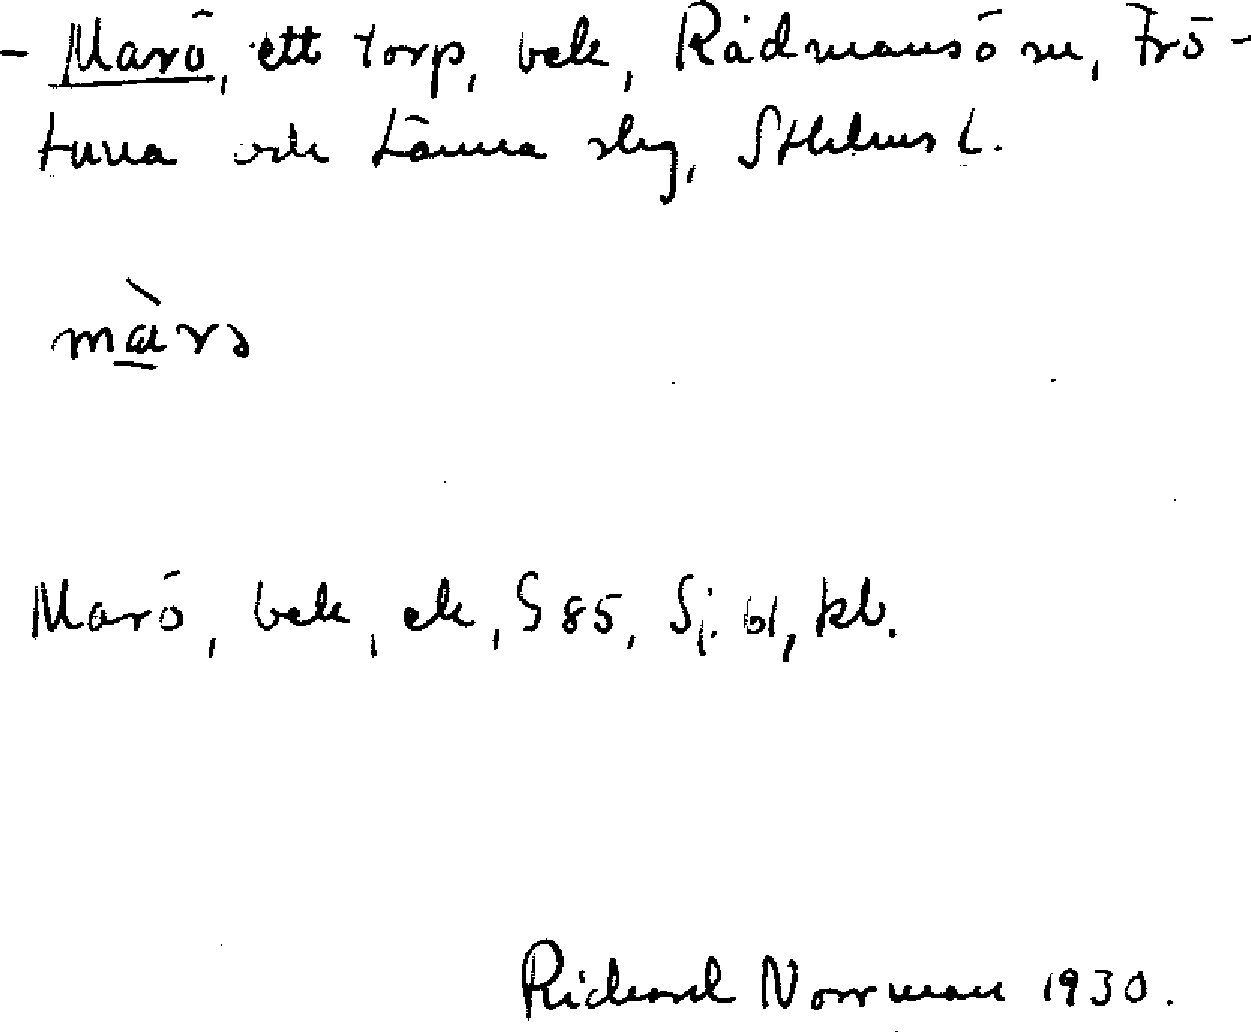 - Marö, ett torp, bek, Rådmansö sn, Frö-
tuna och Länna slg, Sthlms L.
märə
Marö, bek, ek, S 85, Sj. bl, kb.
Rickard Norrman 1930.